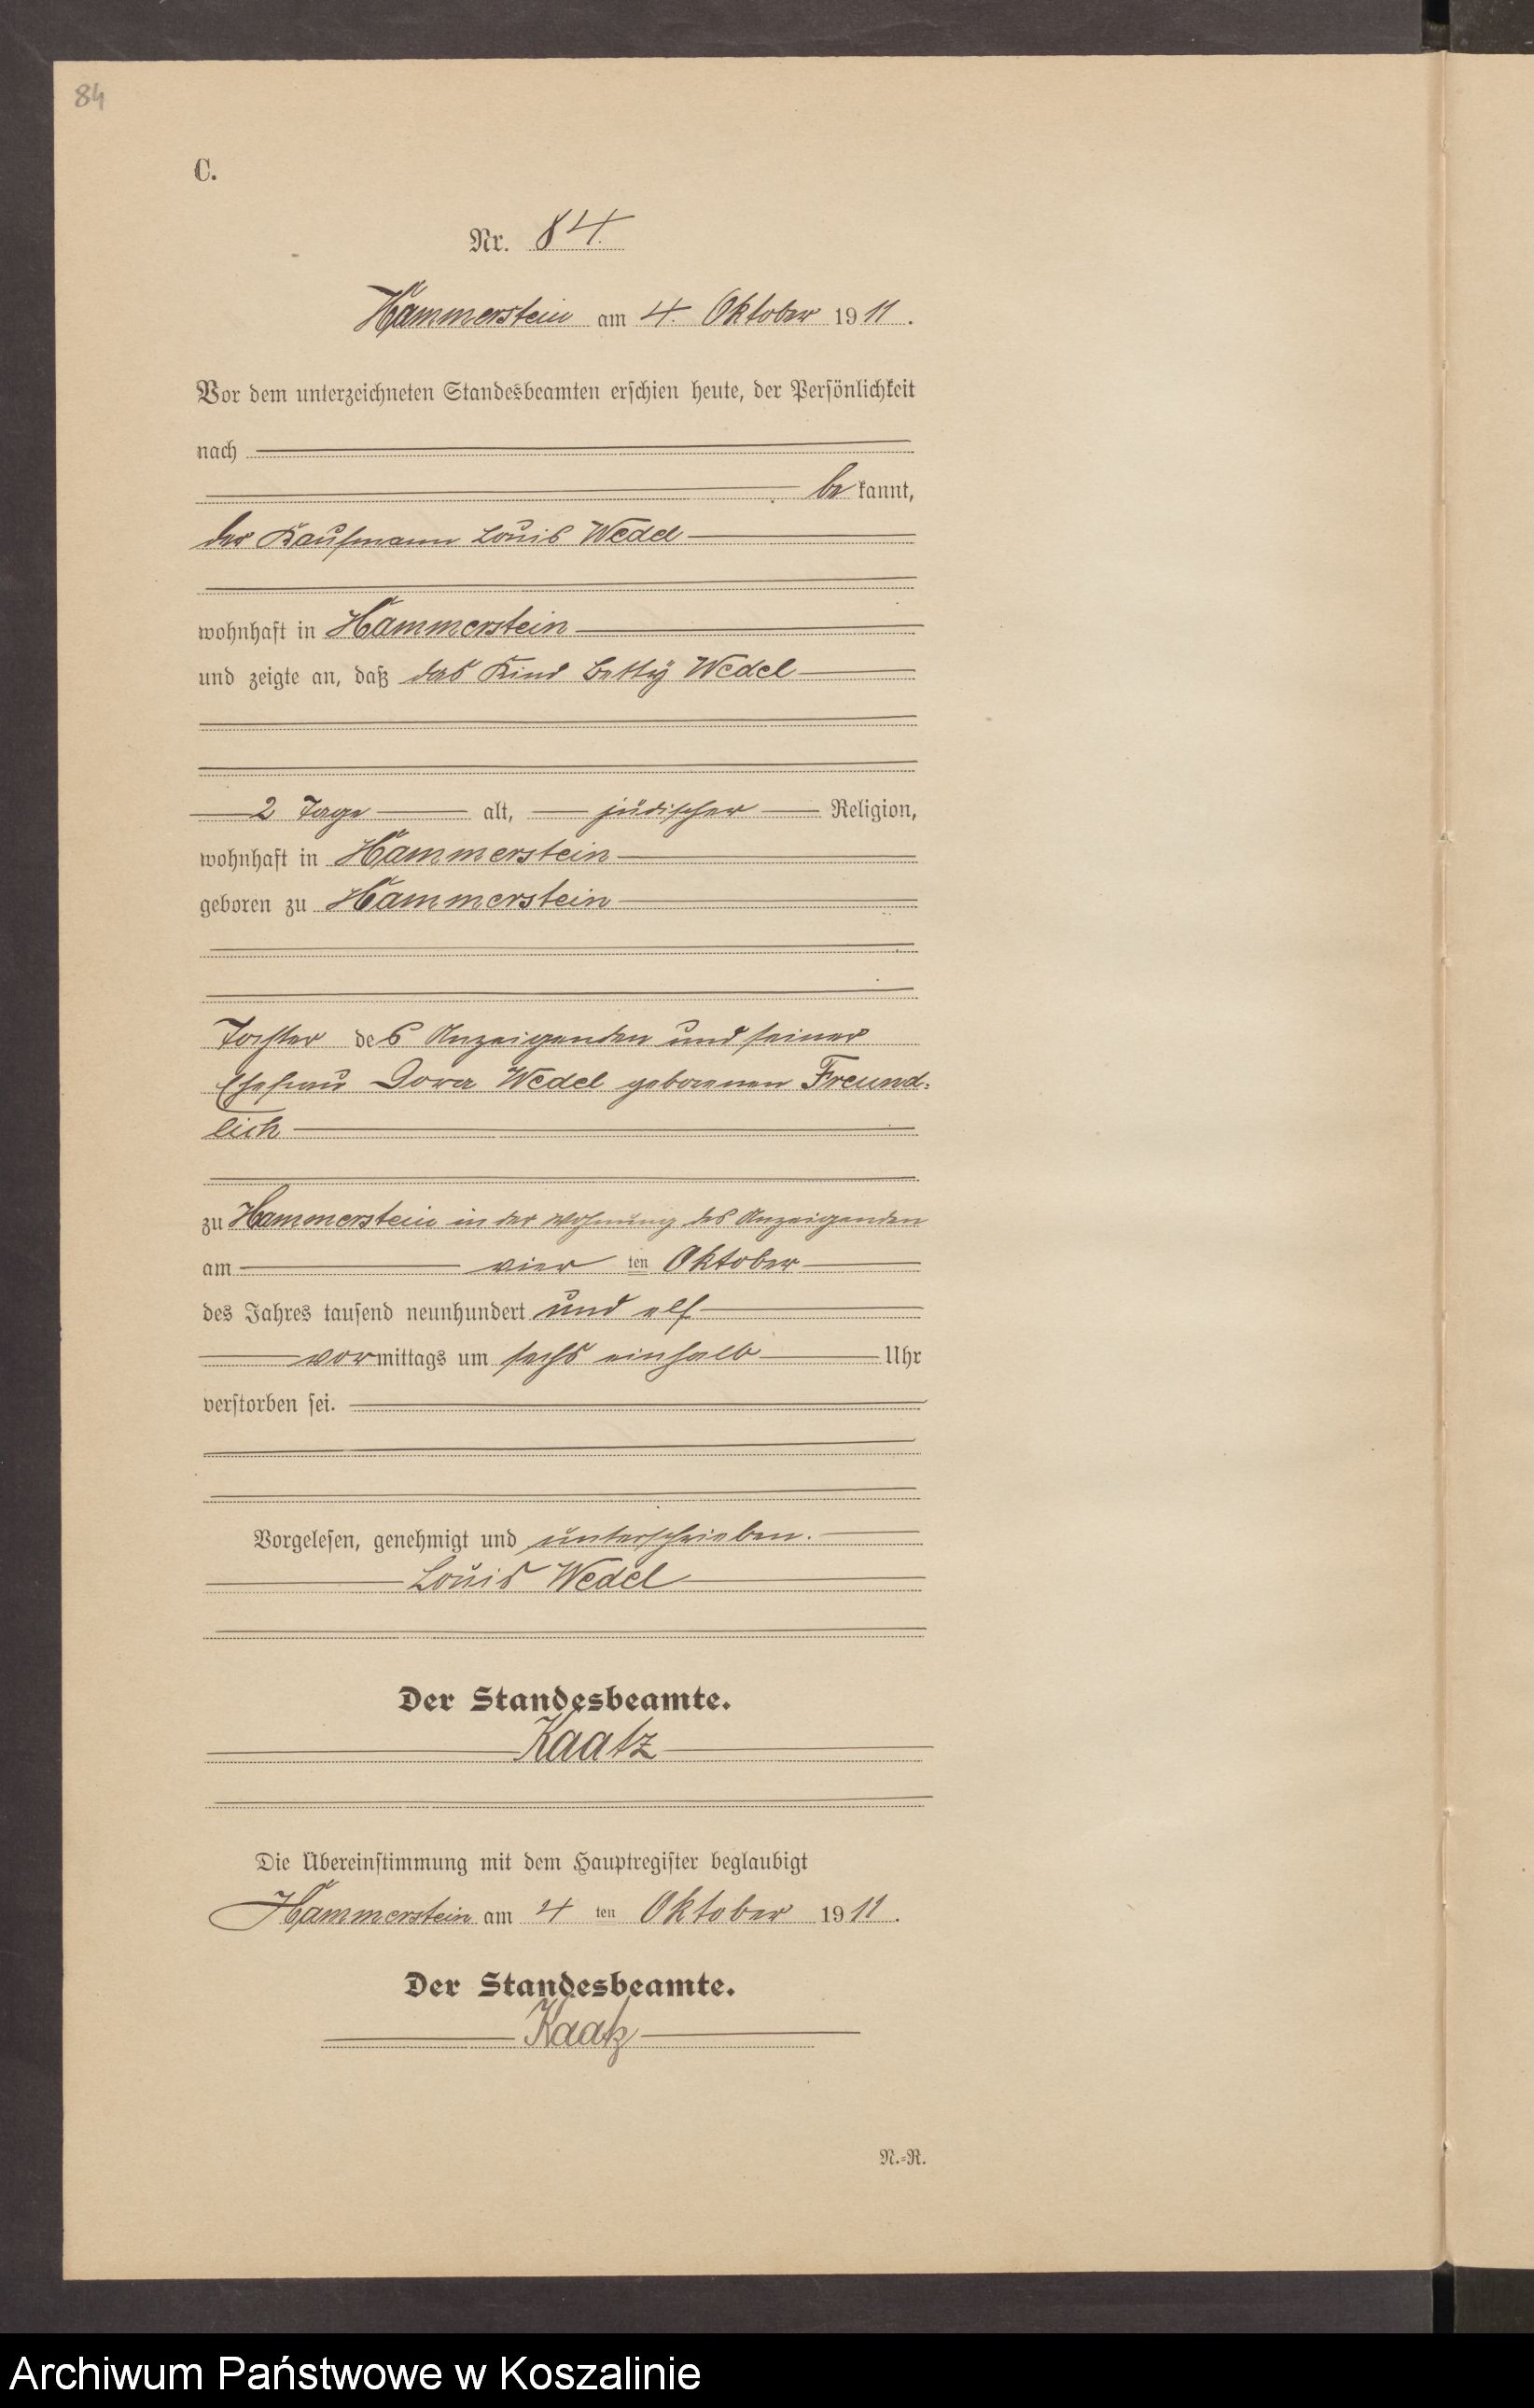 84
C.
Nr. 84.
Hammerstein am 4. Oktober 1911.
Vor dem unterzeichneten Standesbeamten erschien heute, der Persönlichkeit
nach
bekannt,
der Kaufmann Louis Wedel
wohnhaft in Hammerstein
und zeigte an, daß das Kind Betty Wedel
2 Tage alt, jüdischer Religion,
wohnhaft in Hammerstein
geboren zu Hammerstein
Tochter des Anzeigenden und seiner
Ehefrau Dora Wedel geborenen Freund-
lich
zu Hammerstein in der Wohnung des Anzeigenden
am vier ten Oktober
des Jahres tausend neunhundert und elf
vormittags um sechs einhalb Uhr
verstorben sei.
Vorgelesen, genehmigt und unterschrieben.
Louis Wedel
Der Standesbeamte.
Kaatz
Die Übereinstimmung mit dem Hauptregister beglaubigt
Hammerstein am 4 ten Oktober 1911.
Der Standesbeamte.
Kaatz
N.-R.
Archiwum Państwowe w Koszalinie